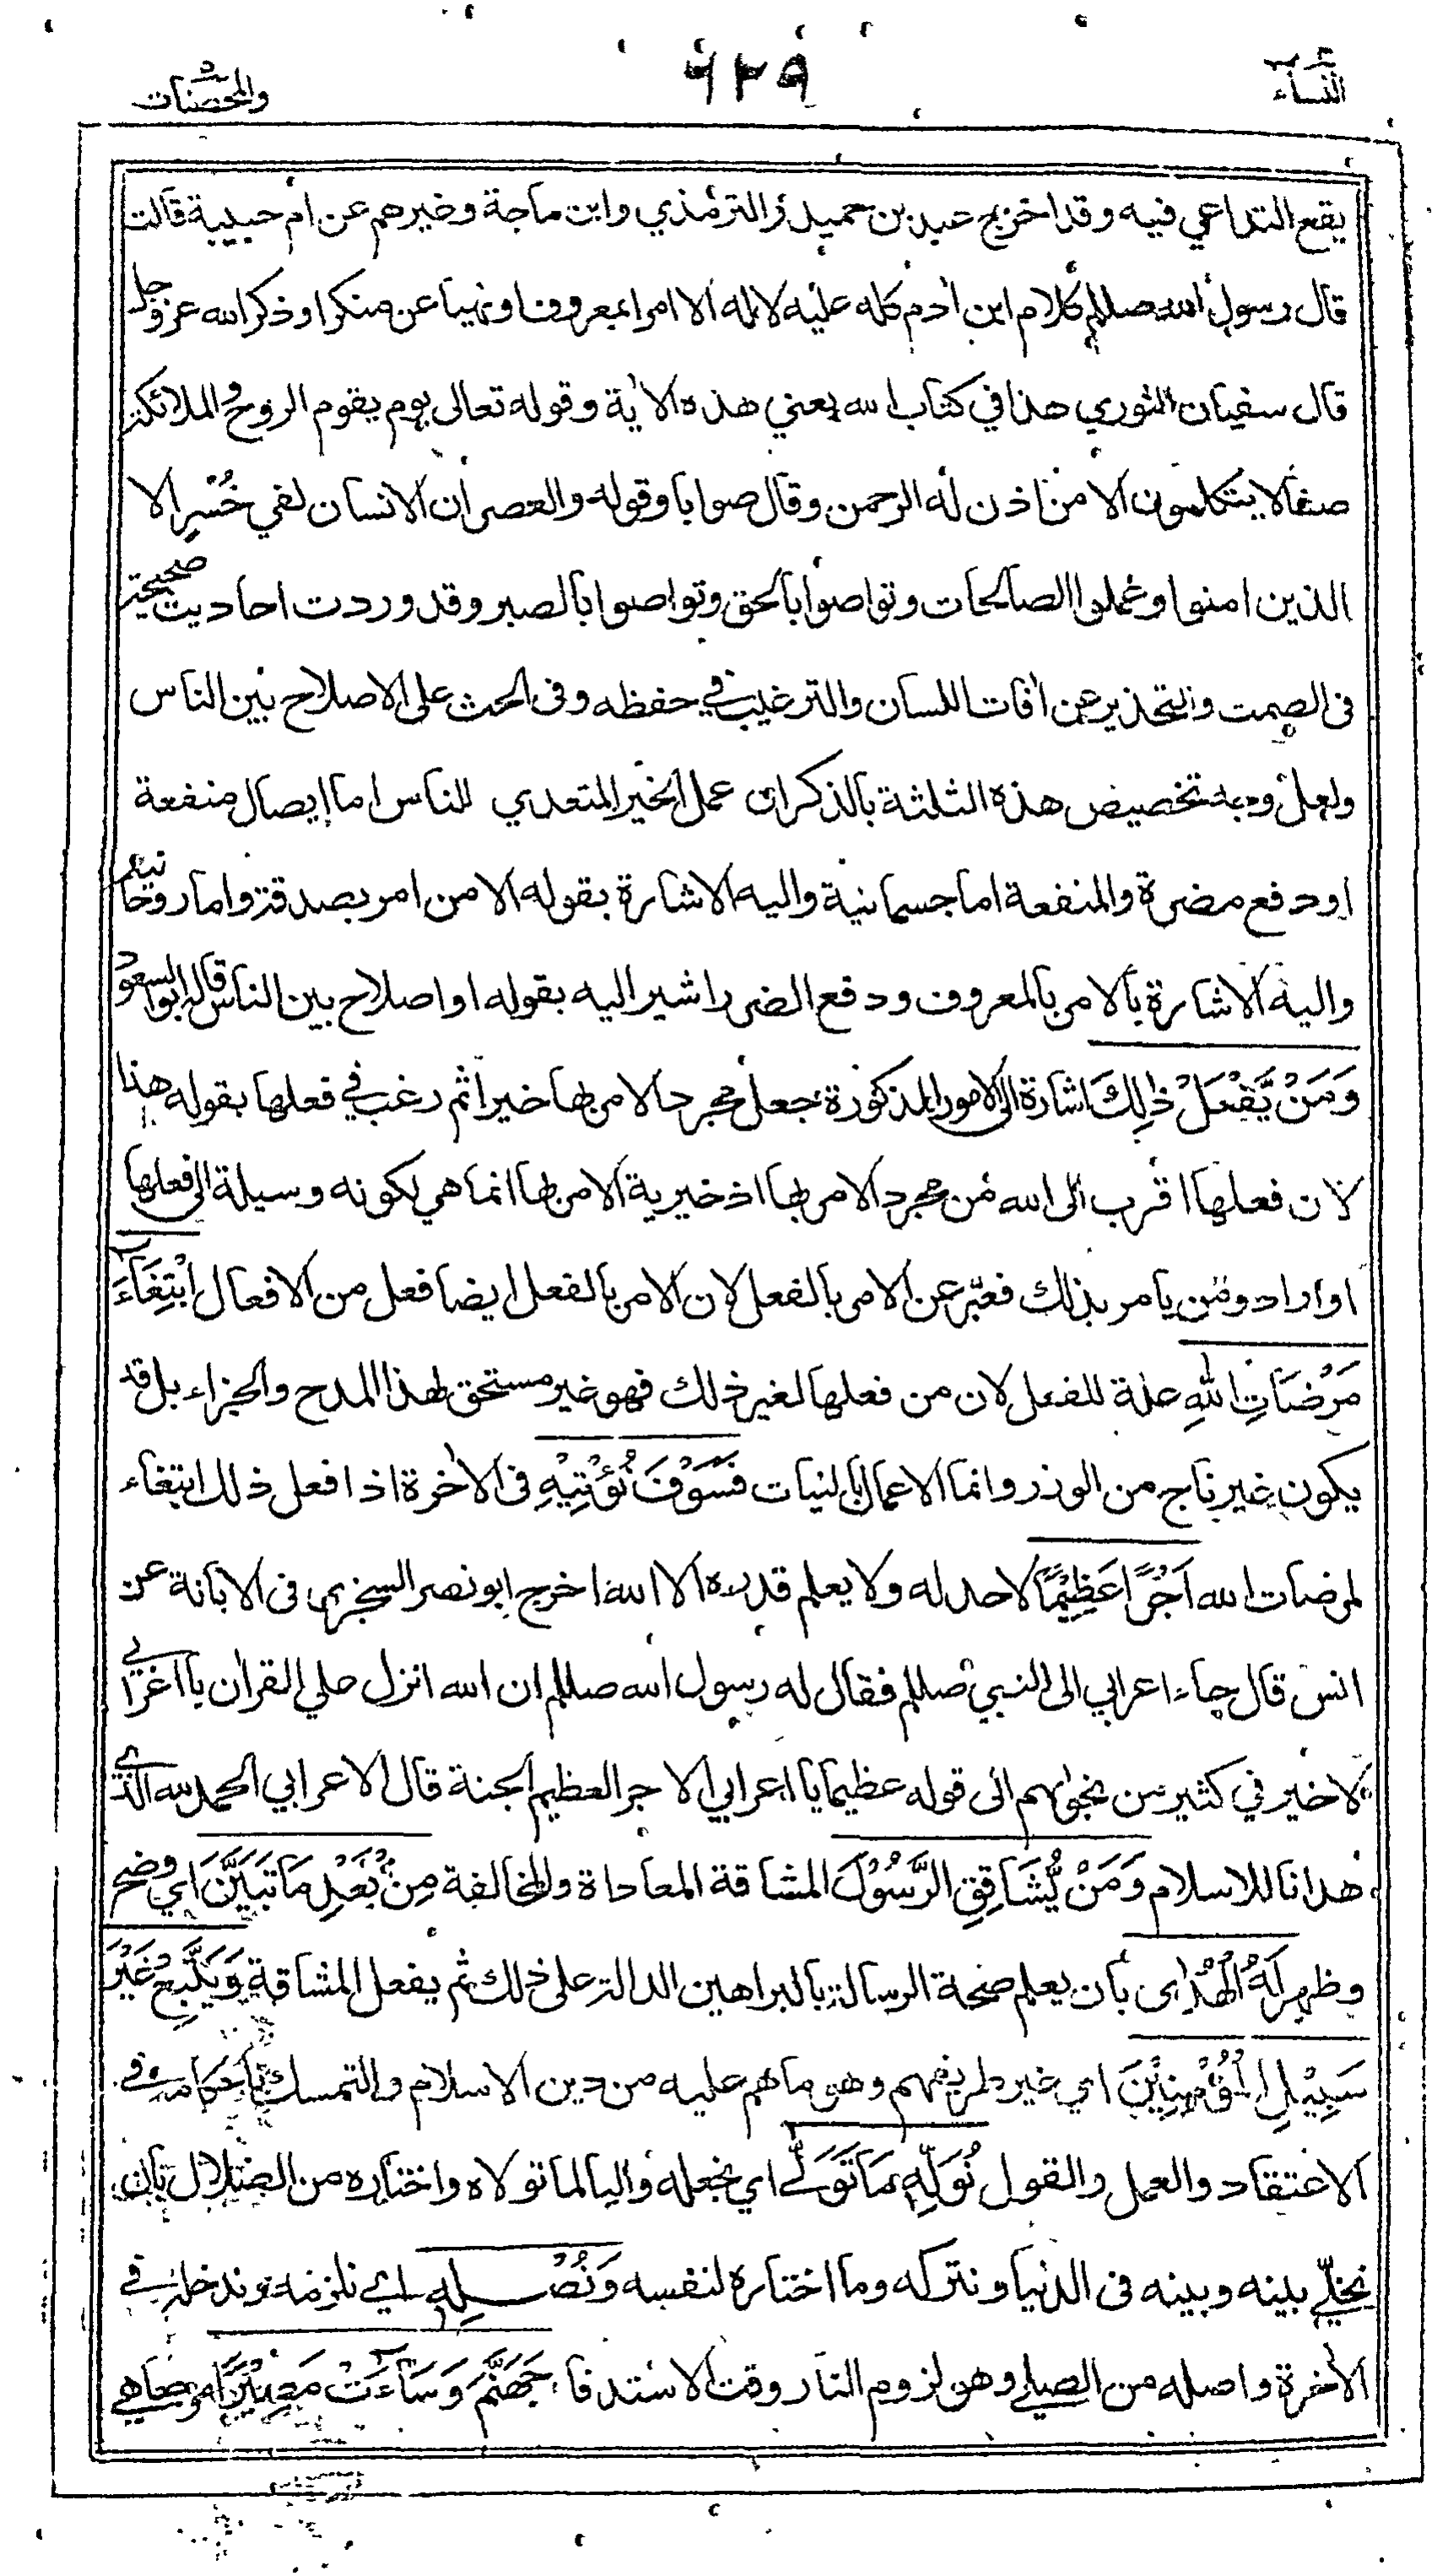 النساء
٦٢٩
والمحصنات
يقع التداعي فيه وقد اخرج عبد بن حميد والترمذي وابن ماجة وغيرهم عن ام حبيبة قالت
قال رسول الله صللم كلام ابن اٰدم كله عليه لا له الا امرا بمعروف او نهيا عن منكر او ذكر الله عز وجل
قال سفيان الثوري هذا في كتاب الله يعني هذه الاٰية وقوله تعالى يوم يقوم الروح والملائكة
صفا لا يتكلمون الا من اذن له الرحمن وقال صوابا وقوله والعصر ان الانسان لفي خُسْرٍ الا
الذين امنوا وعملوا الصالحات وتواصوا بالحق وتواصوا بالصبر وقد وردت احاديث صحيحة
فى الصمت والتحذير عن اٰفات اللسان والترغيب في حفظه وفى الحث على الاصلاح بين الناس
ولعل وجه تخصيص هذه الثلثة بالذكر ان عمل الخير المتعدي للناس اما إيصال منفعة
او دفع مضرة والمنفعة اما جسمانية واليه الاشارة بقوله الا من امر بصدقة واما روحانية
واليه الاشارة بالامر بالمعروف ودفع الضرر اشير اليه بقوله او اصلاح بين الناس قاله ابو السعود
وَمَنْ يَّفْعَلْ ذٰلِكَ اشارة الى الامور المذكورة جعل مجرد الامر بها خيرا ثم رغب في فعلها بقوله هذا
لان فعلها اقرب الى الله من مجرد الامر بها اذ خيرية الامر بها انما هي لكونه وسيلة الى فعلها
او اراد ومن يامر بذلك فعبّر عن الامر بالفعل لان الامر بالفعل ايضا فعل من الافعال ابْتِغَآءَ
مَرْضَاتِ اللّٰهِ علة للفعل لان من فعلها لغير ذلك فهو غير مستحق لهذا المدح والجزاء بل قد
يكون غير ناج من الوزر وانما الاعمال بالنيات فَسَوْفَ نُؤْتِيْهِ فى الاٰخرة اذا فعل ذلك ابتغاء
لمرضات الله اَجْرًا عَظِيْمًا لا حد له ولا يعلم قدره الا الله اخرج ابو نصر السجزي فى الابانة عن
انس قال جاء اعرابي الى النبي صللم فقال له رسول الله صللم ان الله انزل علي القران يا اعرابي
لا خير في كثير من نجواهم الى قوله عظيما يا اعرابي الاجر العظيم الجنة قال الاعرابي الحمد لله الذي
هدانا للاسلام وَمَنْ يُّشَاقِقِ الرَّسُوْلَ المشاقة المعاداة والمخالفة مِنْۢ بَعْدِ مَا تَبَيَّنَ اي وضح
وظهر لَهُ الْهُدٰى بأن يعلم صحة الرسالة بالبراهين الدالة على ذلك ثم يفعل المشاقة وَيَتَّبِعْ غَيْرَ
سَبِيْلِ الْمُؤْمِنِيْنَ اي غير طريقهم وهو ما هم عليه من دين الاسلام والتمسك بأحكامه في
الاعتقاد والعمل والقول نُوَلِّهٖ مَا تَوَلّٰى اي نجعله واليا لما تولاه واختاره من الضلال بان
نخلّي بينه وبينه فى الدنيا ونتركه وما اختاره لنفسه وَنُصْلِهٖ اي نلزمه وندخله في
الاٰخرة واصله من الصلي وهو لزوم النار وقت الاستدفا جَهَنَّمَ وَسَآءَتْ مَصِيْرًا هي